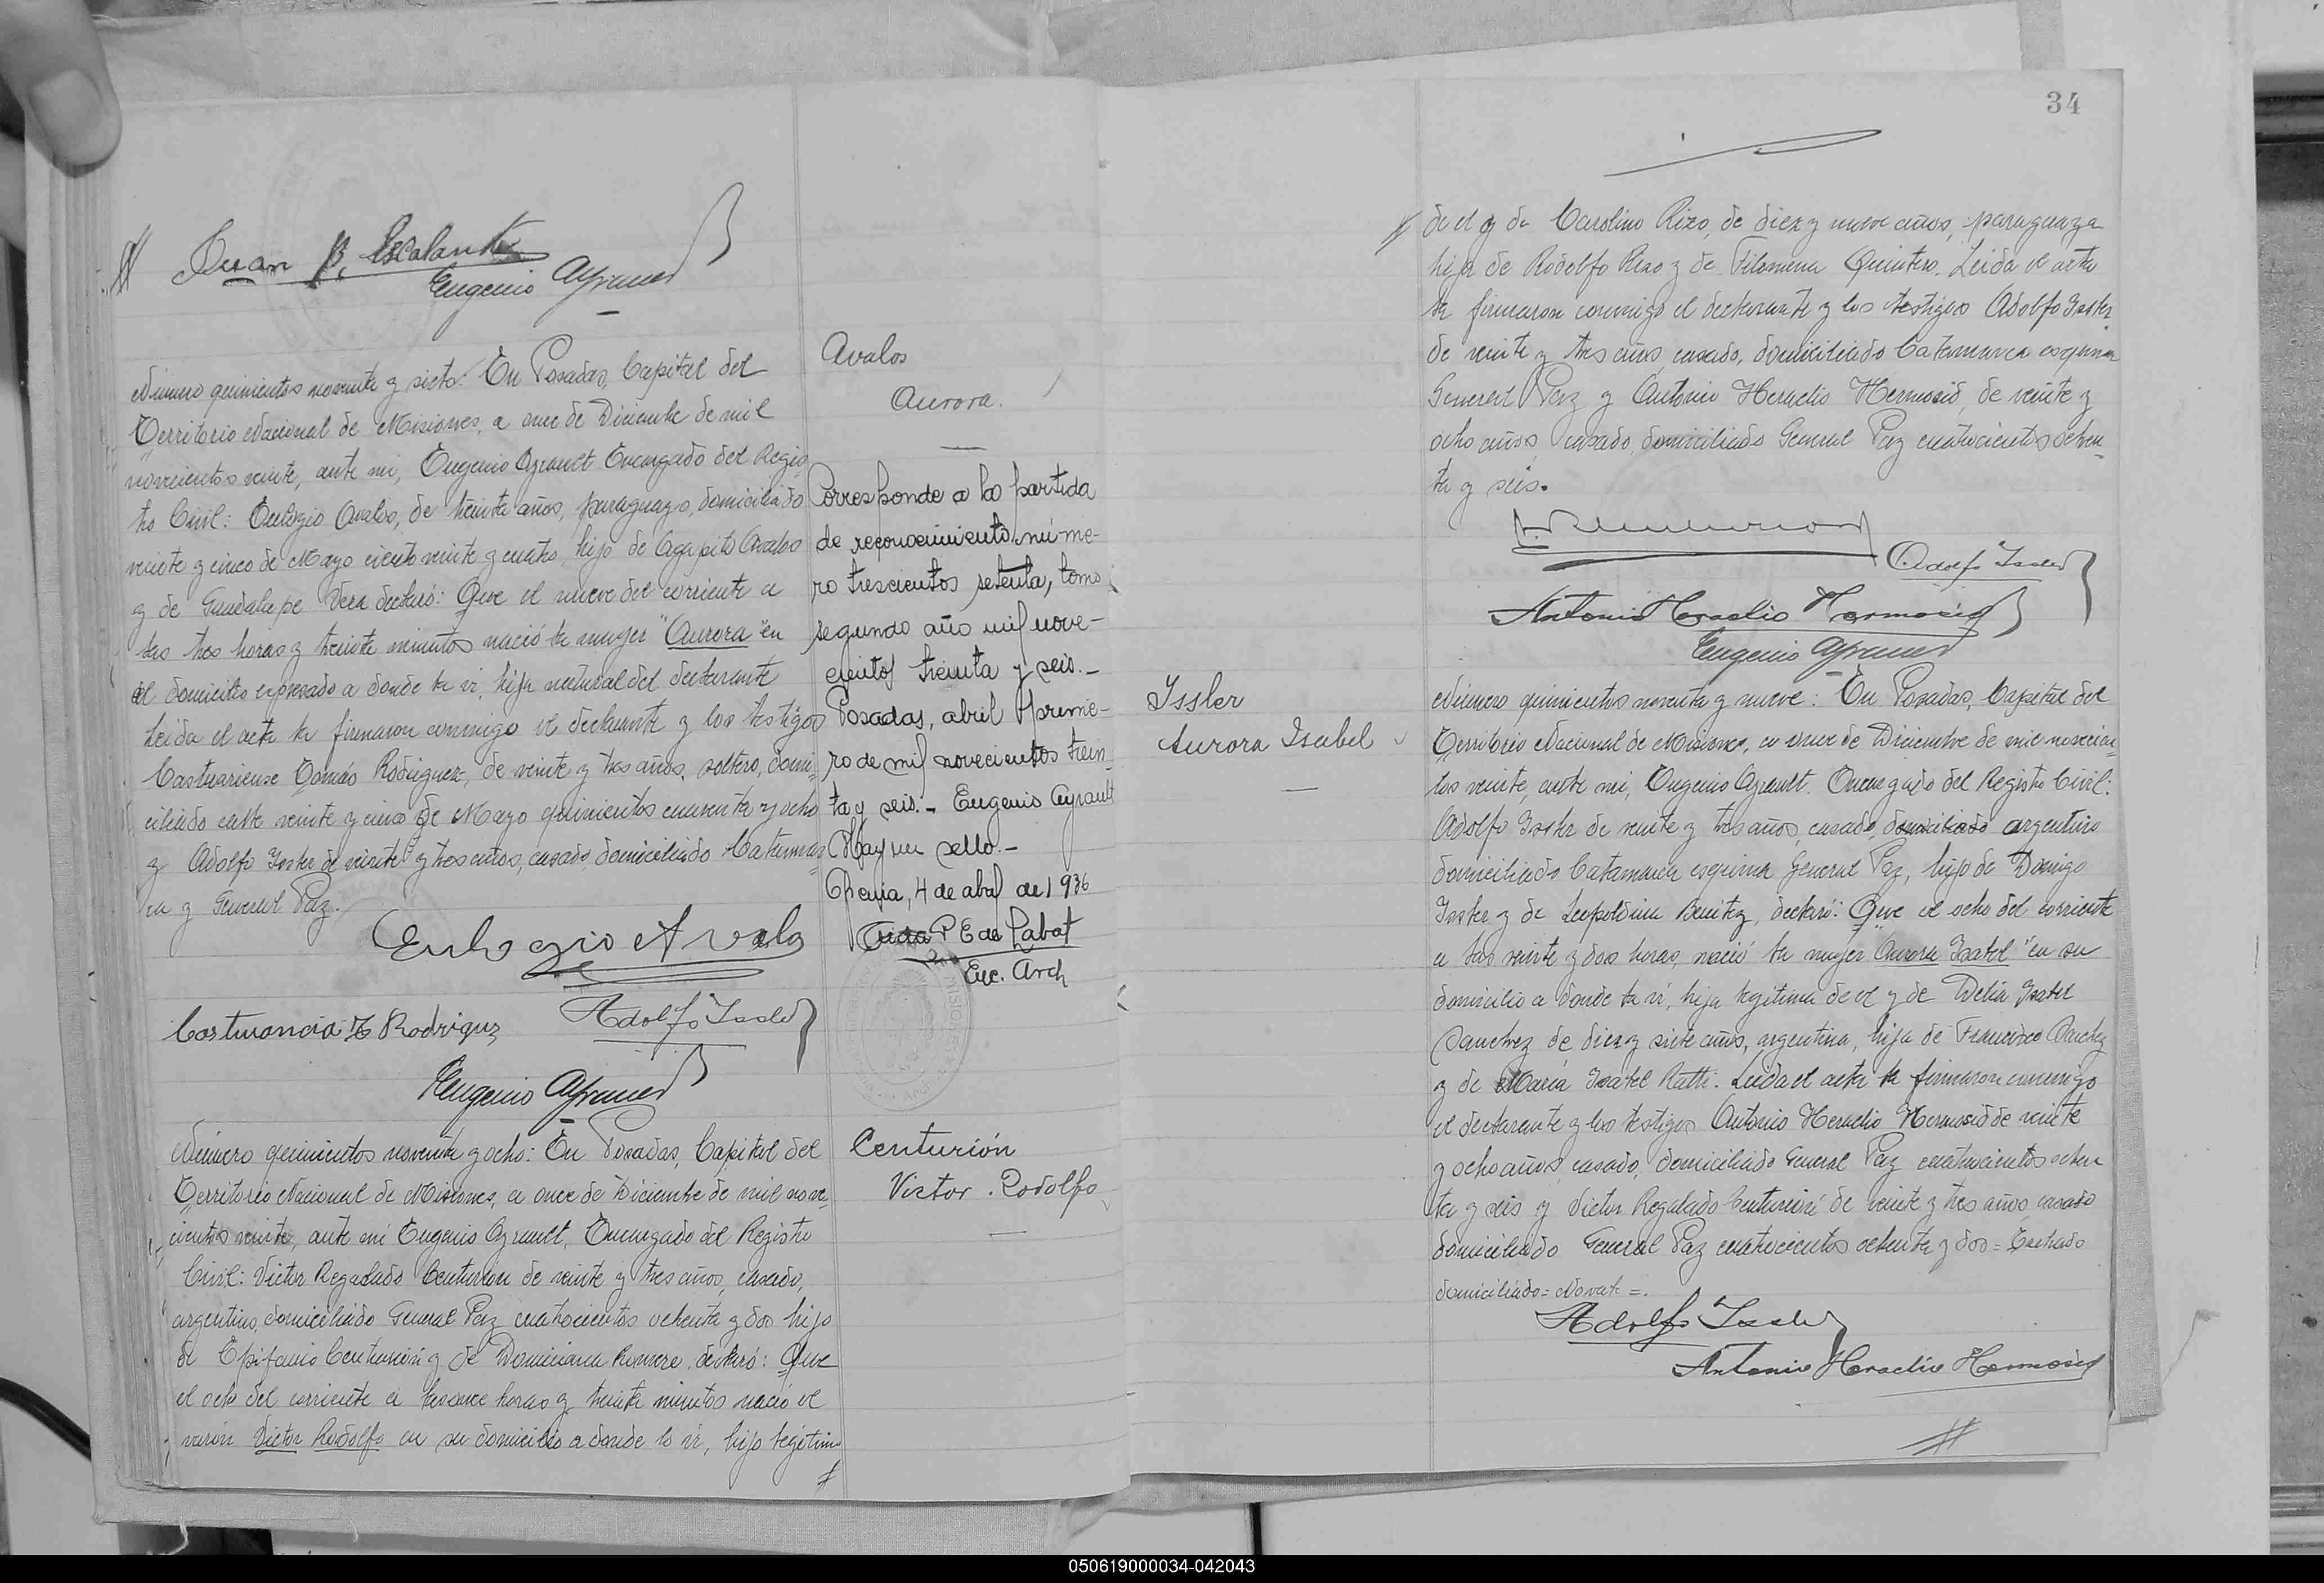 Juan B. Escalante
Eugenio Ayrault
Número quinientos noventa y siete: En Posadas, Capital del
Territorio Nacional de Misiones, a once de Diciembre de mil
novecientos veinte, ante mi, Eugenio Ayrault Encargado del Regis
tro Civil: Eulogio Avalos, de treinta años, paraguayo, domiciliado
veinte y cinco de Mayo ciento veinte y cuatro, hijo de Agapito Avalos
y de Guadalupe Vera declaró: Que el nueve del corriente a
las tres horas y treinta minutos nació la mujer "Aurora" en
el domicilio expresado a donde la vi, hija natural del declarante
Leida el acta la firmaron conmigo el declarante y los testigos
Castuariense Tomás Rodriguez, de veinte y tres años, soltero, domi-
ciliado calle veinte y cinco de Mayo quinientos cuarenta y ocho
y Adolfo Issler de veinte y tres años, casado, domiciliado Catamar-
ca y General Paz.
Eulogio Avalo
Adolfo Issler
T Rodriguz
Eugenio Ayrault
Número quinientos noventa y ocho: En Posadas, Capital del
Territorio Nacional de Misiones, a once de Diciembre de mil nove-
cientos veinte, ante mi Eugenio Ayrault, Encargado del Registro
Civil: Victor Regalado Centurión de veinte y tres años, casado,
argentino, domiciliado General Paz cuatrocientos ochenta y dos hijo
de Epifanio Centurión y de Domiciana Romero, declaró: Que
el ocho del corriente a las once horas y treinta minutos nació el
varón Victor Rodolfo en su domicilio a donde lo vi, hijo legitimo
Avalos
Aurora.
Corresponde a la partida
de reconocimiento núme-
ro trescientos setenta, tomo
segundo año mil nove-
cientos treinta y seis.-
Posadas, abril prime-
ro de mil novecientos trein-
ta y seis.- Eugenio Ayrault
Hay un sello.-
4 de abril de 1936
P E de Labat
Enc. Arch
Centurión
Victor Rodolfo
34
de el y de Carolina Rizo, de diez y nueve años, paraguaya
hija de Rodolfo Rizo y de Filomena Quintero. Leida el acta
la firmaron conmigo el declarante y los testigos Adolfo Issler
de veinte y tres años, casado, domiciliado Catamarca esquina
General Paz y Antonio Heraclio Hermosid, de veinte y
ocho años, casado, domiciliado General Paz cuatrocientos ochen-
ta y seis.
Adolfo Issler
Antonio Heraclio Hermosid
Eugenio Ayrault
Issler
Aurora Isabel
Número quinientos noventa y nueve: En Posadas, Capital del
Territorio Nacional de Misiones, a once de Diciembre de mil novecien-
tos veinte, ante mi, Eugenio Ayrault. Encargado del Registro Civil:
Adolfo Issler de veinte y tres años, casado, domiciliado argentino
domiciliado Catamarca esquina General Paz, hijo de Domigo
Issler y de Leopoldina Benitez, declaró: Que el ocho del corriente
a las veinte y dos horas, nació la mujer "Aurora Isabel" en su
domicilio a donde la vi, hija legitima de el y de Delia Isabel
Sanchez de diez y siete años, argentina, hija de Francisco Sanchez
y de Maria Isabel Ratti. Leida el acta la firmaron conmigo
el declarante y los testigos Antonio Heraclio Hermosid de veinte
y ocho años, casado, domiciliado General Paz cuatrocientos ochen
ta y seis y Victor Regalado Centurión de veinte y tres años, casado
domiciliado General Paz cuatrocientos ochenta y dos = Testado
domiciliado = No vale =.
Adolfo Issler
Antonio Heraclio Hermosid
050619000034-042043